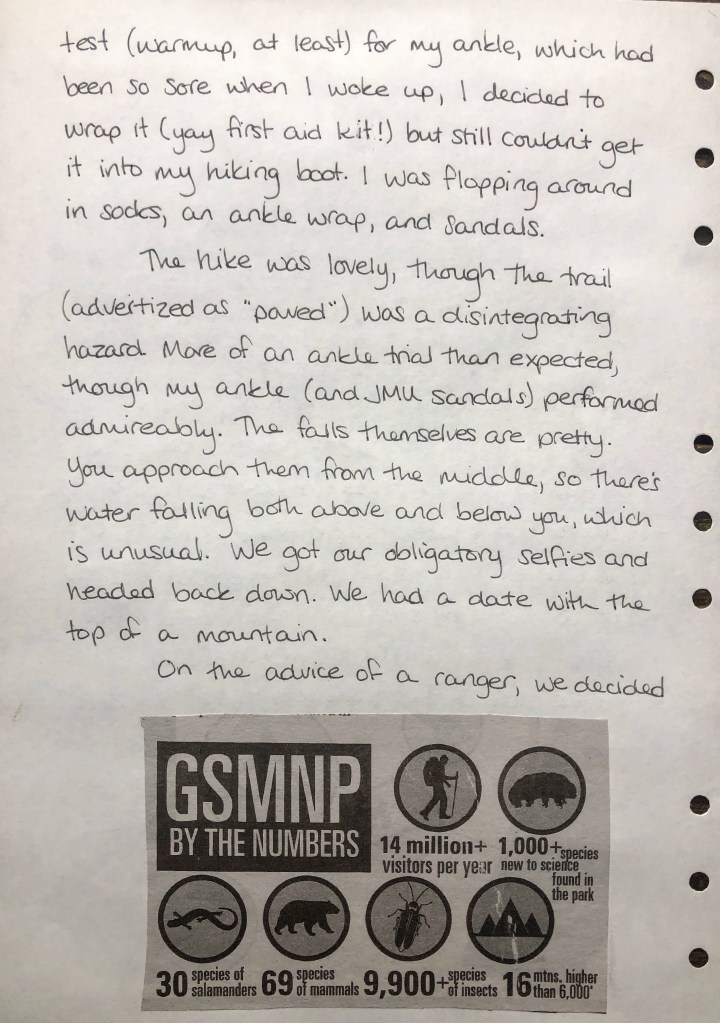 test (warmup, at least) for my ankle, which had
been so sore when I woke up, I decided to
wrap it (yay first aid kit!) but still couldn't get
it into my hiking boot. I was flopping around
in socks, an ankle wrap, and sandals.
The hike was lovely, though the trail
(advertized as "paved") was a disintegrating
hazard. More of an ankle trial than expected,
though my ankle (and JMU sandals) performed
admireably. The falls themselves are pretty.
You approach them from the middle, so there's
water falling both above and below you, which
is unusual. We got our obligatory selfies and
headed back down. We had a date with the
top of a mountain.
On the advice of a ranger, we decided
GSMNP
BY THE NUMBERS
14 million+
visitors per year
1,000+ species
new to science
found in
the park
30 species of
salamanders
69 species
of mammals
9,900+ species
of insects
16 mtns. higher
than 6,000'